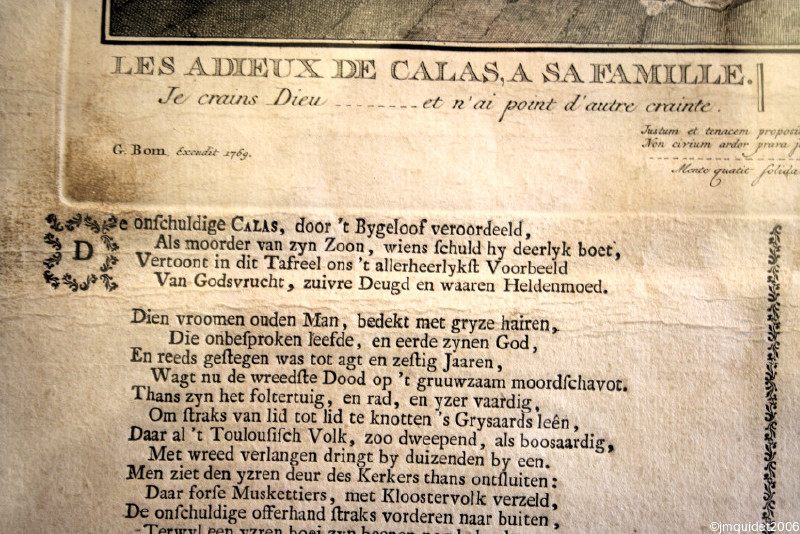 LES ADIEUX DE CALAS, A SA FAMILLE.
Je crains Dieu ......... et n'ai point d'autre crainte.
Justum et tenacem
Non civium ardor prava
Mente quatit solida
G. Bom Excudit 1769.
De onſchuldige CALAS, door 't Bygeloof veroordeeld,
Als moorder van zyn Zoon, wiens ſchuld hy deerlyk boet,
Vertoont in dit Tafreel ons 't allerheerlykſt Voorbeeld
Van Godsvrucht, zuivre Deugd en waaren Heldenmoed.
Dien vroomen ouden Man, bedekt met gryze hairen,
Die onbeſproken leefde, en eerde zynen God,
En reeds geſtegen was tot agt en zeſtig Jaaren,
Wagt nu de wreedſte Dood op 't gruuwzaam moordſchavot.
Thans zyn het foltertuig, en rad, en yzer vaardig,
Om ſtraks van lid tot lid te knotten 's Grysaards leên,
Daar al 't Toulouſiſch Volk, zoo dweepend, als boosaardig,
Met wreed verlangen dringt by duizenden by een.
Men ziet den yzren deur des Kerkers thans ontſluiten:
Daar forſe Muskettiers, met Kloostervolk verzeld,
De onſchuldige offerhand ſtraks vorderen naar buiten,
Terwyl een yzren boei zyn
©jmguidet2006